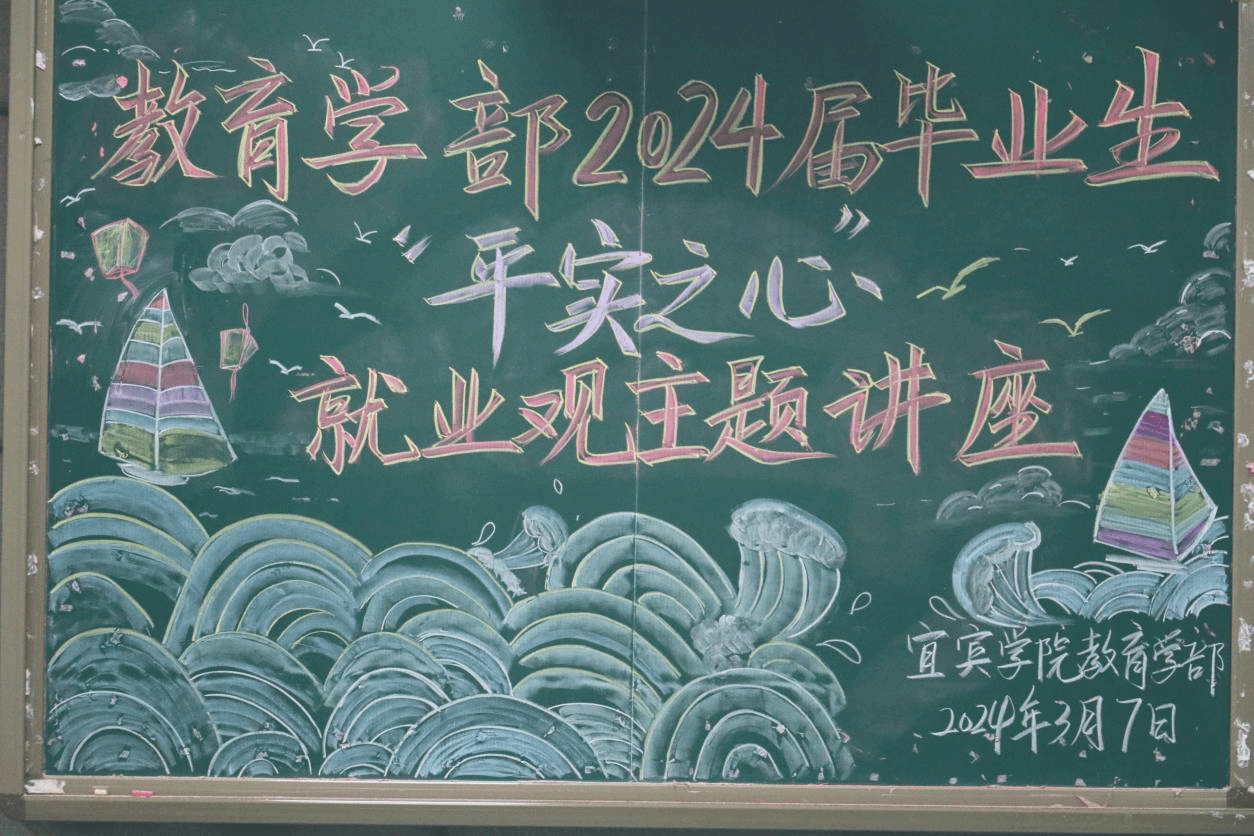 教育学部2024届毕业生
“平实之心”
就业观主题讲座
宜宾学院教育学部
2024年3月7日